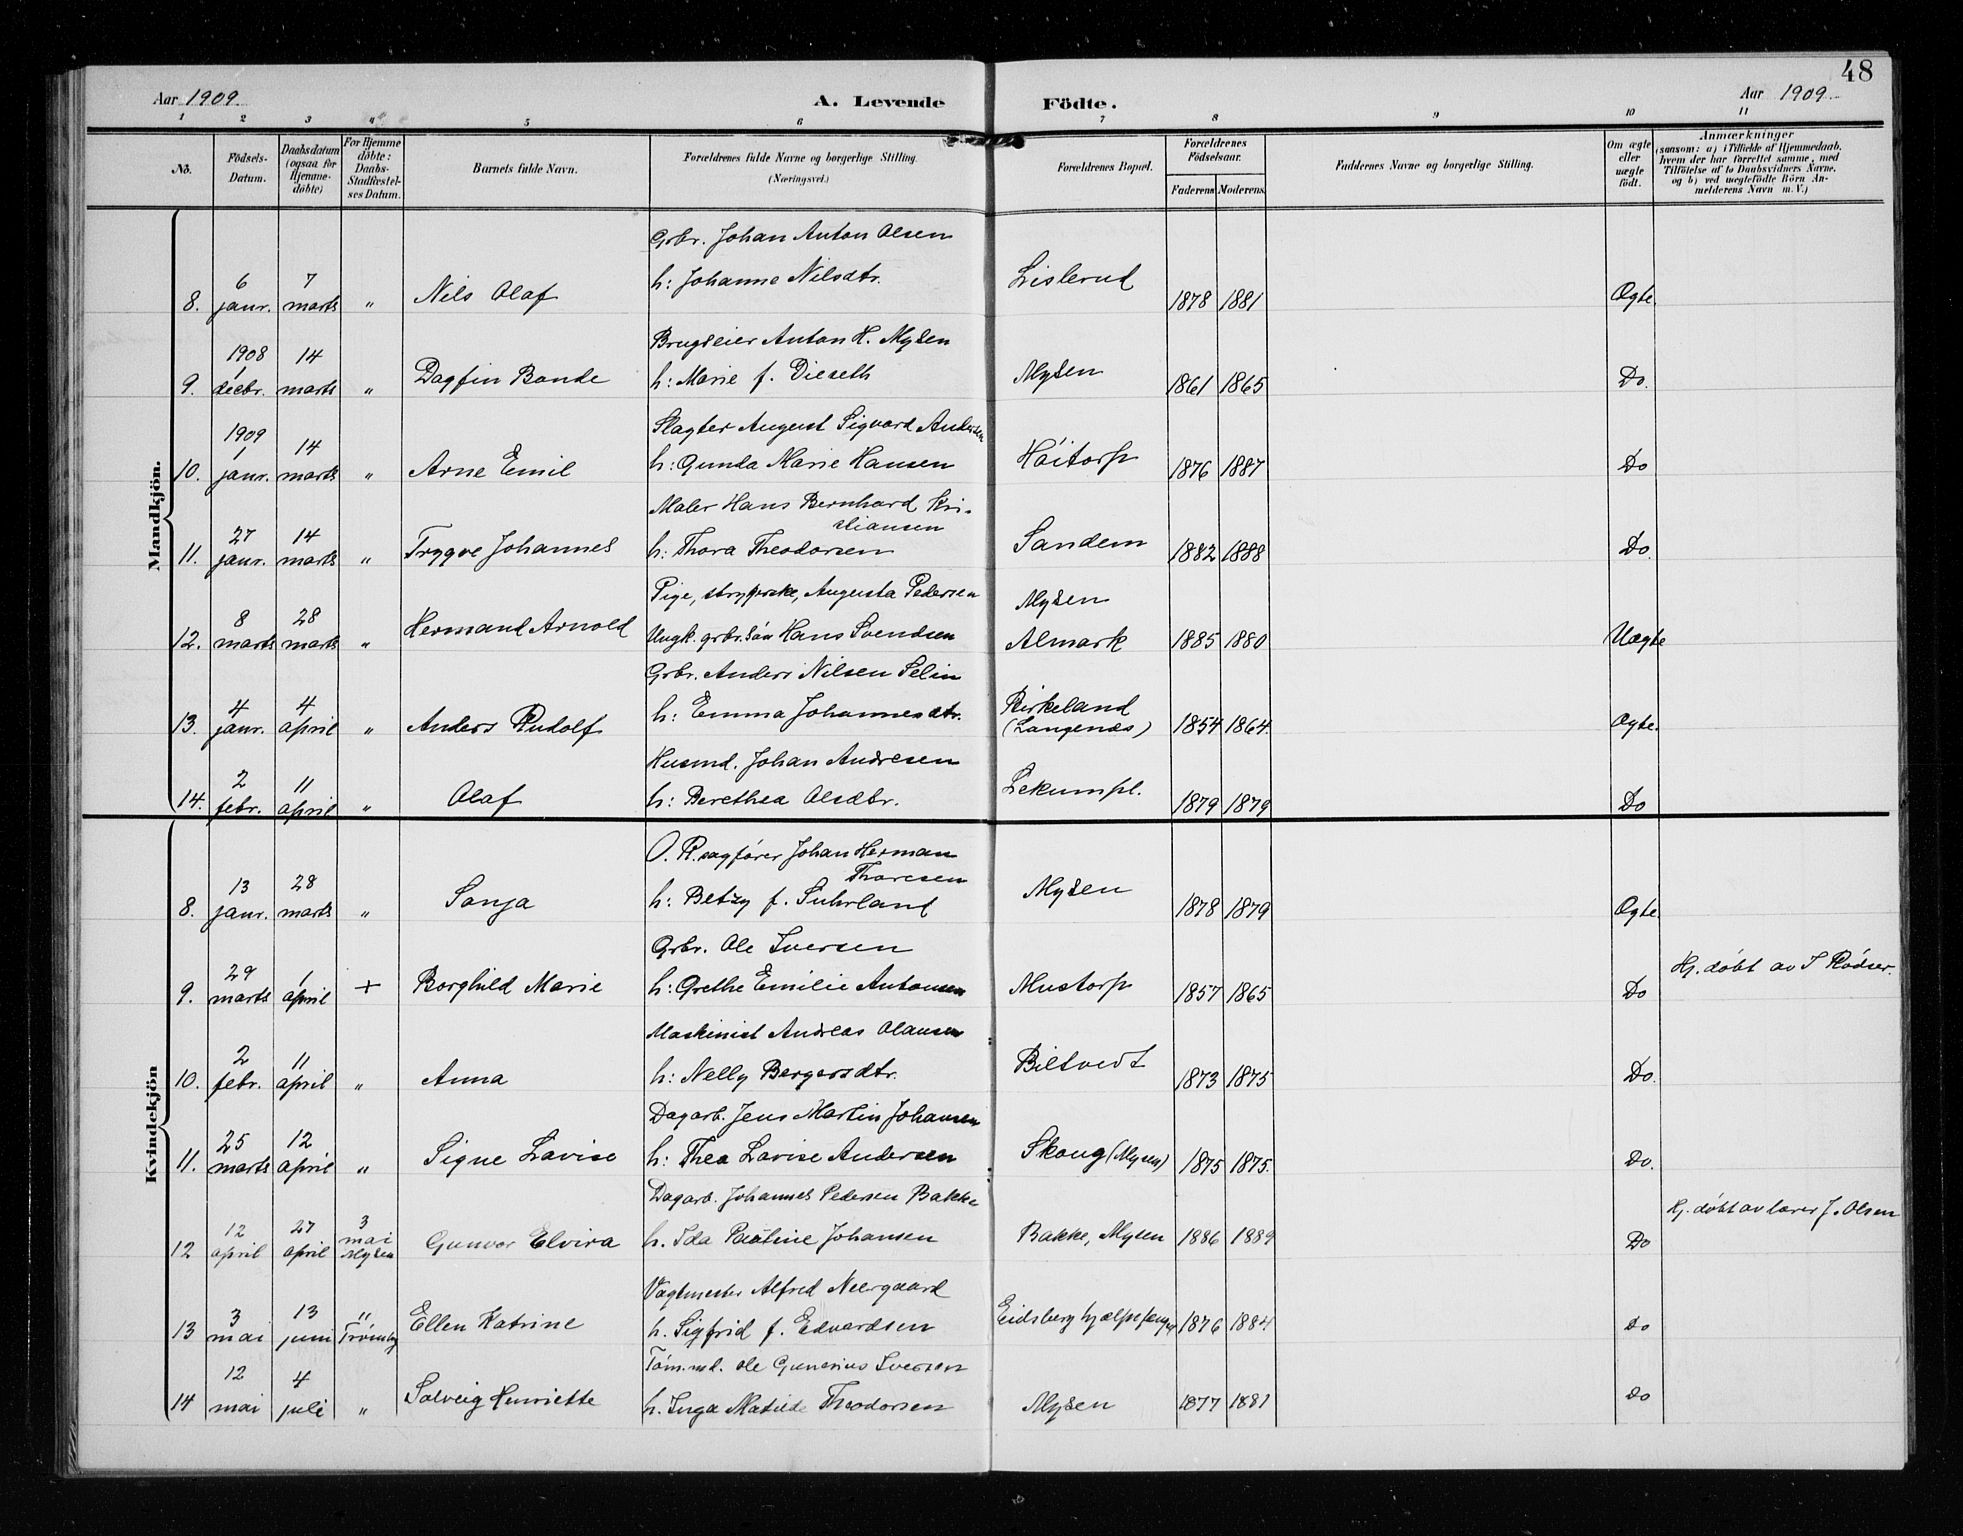 48
Aar 1909. A. Levende Födte. Aar 1909.
1 2 3 4 5 6 7 8 9 10 11
No. Födsels-Datum. Daabsdatum (ogsaa for Hjemmedöbte) For Hjemmedöbte: Daabs-Stadfæstelses Datum. Barnets fulde Navn. Forældrenes fulde Navne og borgerlige Stilling. (Næringsvei.) Forældrenes Bopæl. Forældrenes Födselsaar. Faderens Moderens. Faddernes Navne og borgerlige Stilling. Om ægte eller uægte födt. Anmærkninger (saasom: a) i Tilfælde af Hjemmedaab, hvem der har forrettet samme, med Tilföielse af to Daabsvidners Navne, og b) ved uægtefödte Börn Anmelderens Navn m. V.)
Mandkjön.
Grbr. Johan Anton Olsen
8. 6 janr. 7 marts " Nils Olaf h: Johanne Nilsdtr. Lislerud 1878 1881 Ægte.
Brugseier Anton H. Mysen
9. 1908 1 decbr. 14 marts " Dagfin Bonde h: Marie f. Dieseth Mysen 1861 1865 Do.
Slagter August Sigvard Andersen
10. 1909 1 janr. 14 marts " Arne Emil h: Gunda Marie Hansen Höitorp 1876 1887 Do
Maler Hans Bernhard Kri-
stiansen
11. 27 janr. 14 marts " Trygve Johannes h: Thora Theodorsen Sandem 1882 1888 Do.
Pige, Augusta Pedersen Mysen
12. 8 marts 28 marts " Hermand Arnold Ungk. grbr.sön Hans Svendsen Almark 1885 1880 Uægte
Grbr. Anders Nilsen Selin
13. 4 janr. 4 april " Anders Rudolf h: Emma Johannesdtr. Birkeland (Langenæs) 1854 1864. Ægte.
Husmd. Johan Andresen
14. 2 febr. 11 april " Olaf h: Berethea Olsdtr. Lekumpl. 1879 1879 Do
Kvindekjön
O.R.sagförer Johan Herman
Thoresen
8. 13 janr. 28 marts " Sonja h: Betzy f. Suhrland Mysen 1878 1879 Ægte.
Grbr. Ole Iversen
9. 29 marts 1 april + Borghild Marie h: Grethe Emilie Antonsen Mustorp 1857 1865 Do Hj. döbt av I Rödser.
Maskinist Andreas Olausen
10. 2 febr. 11 april " Anna h: Nelly Bergersdtr. Biltvedt 1873 1875 Do.
Dagarb. Jens Martin Johansen
11. 25 marts 12 april " Signe Lovise h: Thea Lovise Andersen Skoug (Mysen) 1875 1875. Do.
Dagarb. Johannes Pedersen Bakke
12 12 april 27 april 3 mai Mysen Gunvor Elvira h. Ida Pauline Johansen Bakke, Mysen 1886 1889 Do Hj. döbt av lærer J. Olsen
Vagtmester Alfred Neergaard
13 3 mai 13 juni " Trömborg Ellen Katrine h. Sigfrid f. Edvardsen Eidsberg hjælpefængsel 1876 1884 Do
Töm.md. Ole Gunerius Iversen
14 12 mai 4 juli " Solveig Henriette h. Inga Matilde Theodorsen Mysen 1877 1881 Do